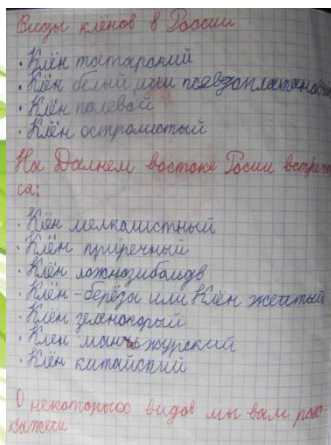 Виды клёнов в России
• Клён татарский
• Клён белый или псевдоплатановый
• Клён полевой
• Клён остролистый
На Далнем востоке Росии встреча
са:
• Клён мелколистный
• Клён приречный
• Клён ложнозибольдв
• Клён-берёза или Клён жёлтый
• Клён зеленокорый
• Клен маньчжурский
• Клён китайский
О некоторых видов мы вам рас-
кажем